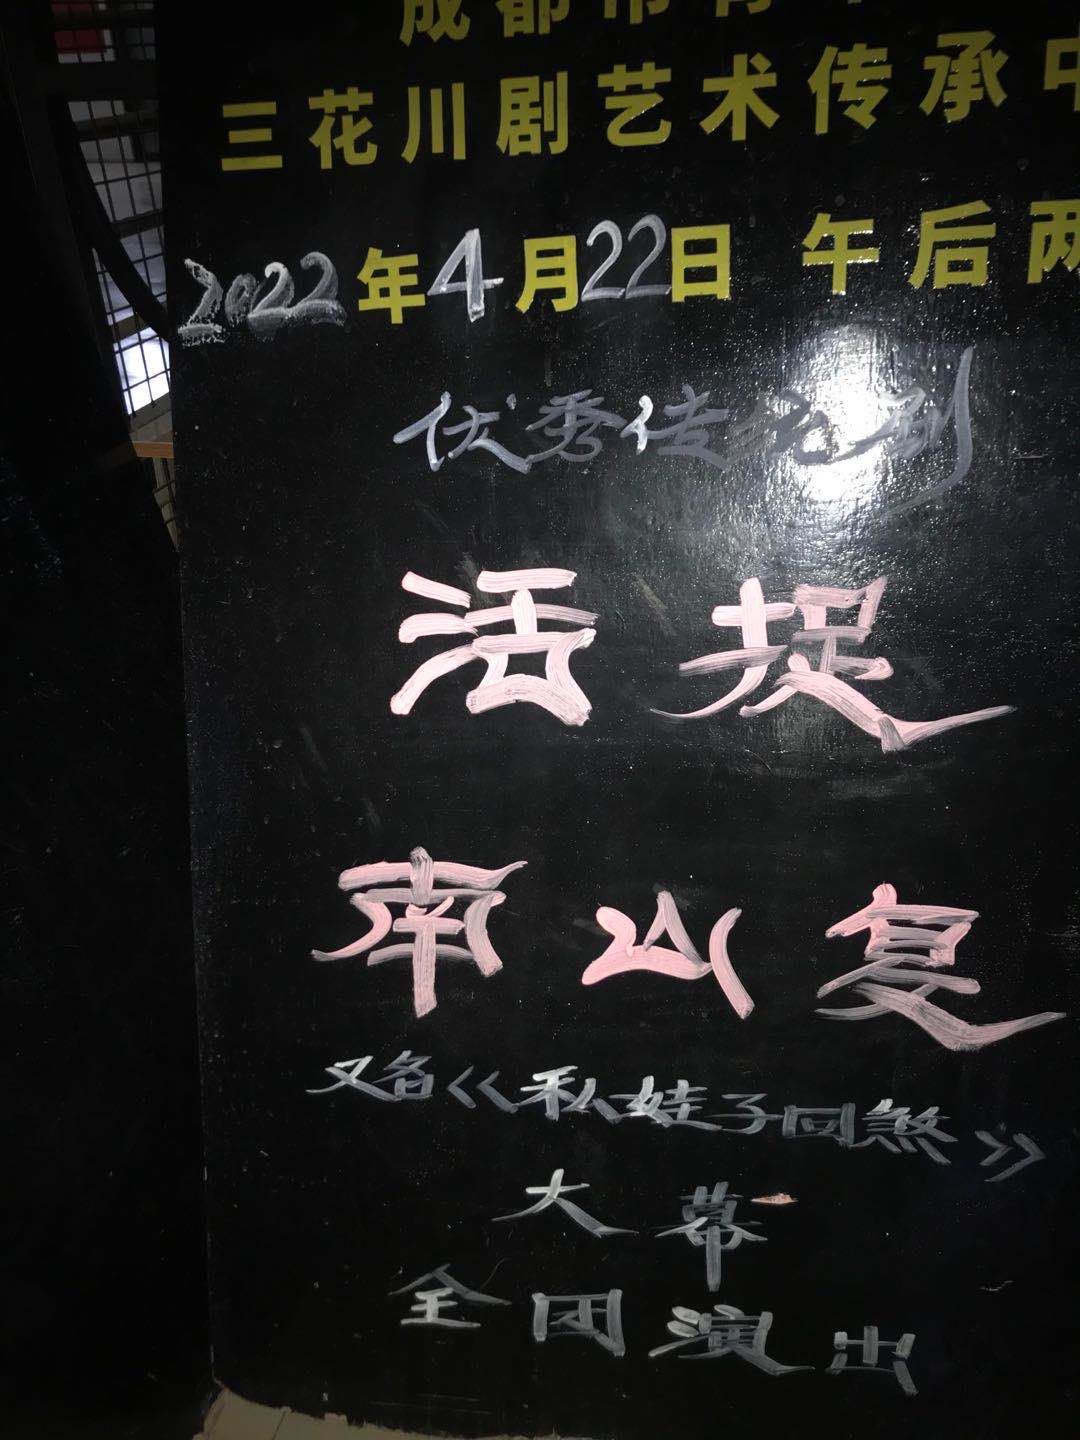 成都市青羊
三花川剧艺术传承中
2022年4月22日 午后两
优秀传统剧
活捉
南山复
又名《私娃子回煞》
大幕
全团演出